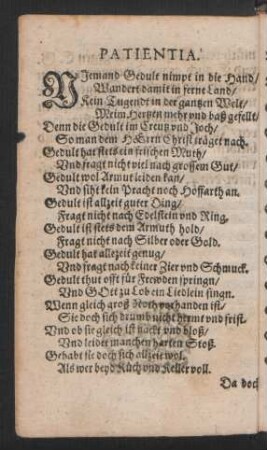 PATIENTIA.
NJemand Gedult nimpt in die Hand/
Wandert damit in ferne Land/
Kein Tugendt in der gantzen Welt/
Meim Hertzen mehr vnd baß gefellt/
Denn die Gedult im Creutz vnd Joch/
So man dem HErrn Christ träget nach.
Gedult hat stets ein frischen Muth/
Vnd fragt nicht viel nach grossem Gut/
Gedult wol Armut leiden kan/
Vnd siht kein Pracht noch Hoffarth an.
Gedult ist allzeit guter Ding/
Fragt nicht nach Edelstein vnd Ring,
Gedult ist stets dem Armuth hold/
Fragt nicht nach Silber oder Gold.
Gedult hat allezeit genug/
Vnd fragt nach keiner Zier vnd Schmuck.
Gedult thut offt für Frewden springn/
Vnd GOtt zu Lob ein Liedlein singn.
Wenn gleich groß Noth vorhanden ist/
Sie doch sich drumb nicht hermt vnd frist.
Vnd ob sie gleich ist nackt vnd bloß/
Vnd leidet manchen harten Stoß.
Gehabt sie doch sich allzeit wol.
Als wer beyd Küch vnd Keller voll.
Da doch